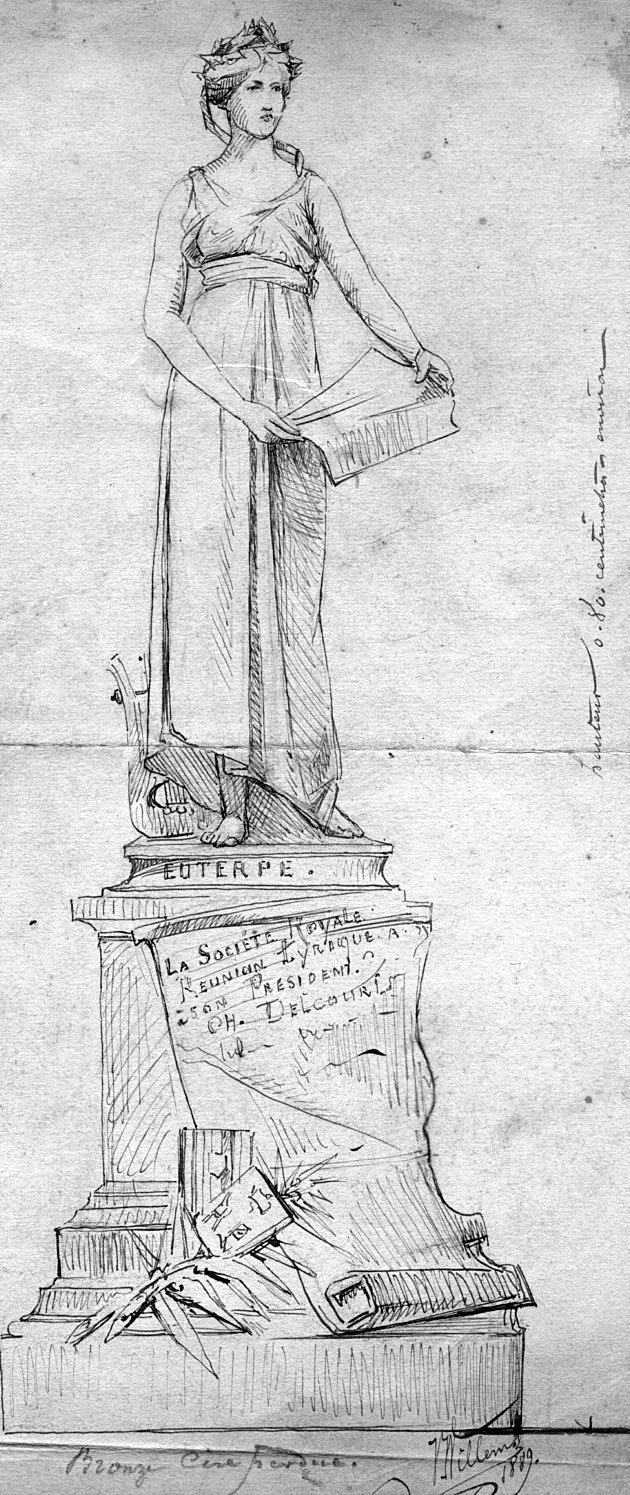 EUTERPE.
LA SOCIÉTÉ ROYALE
RÉUNION LYRIQUE. A.
à SON PRÉSIDENT.
CH. DELCOURT
hauteur 0.80. centimètres environ
Bronze Cire perdue.
J Willems
1889.